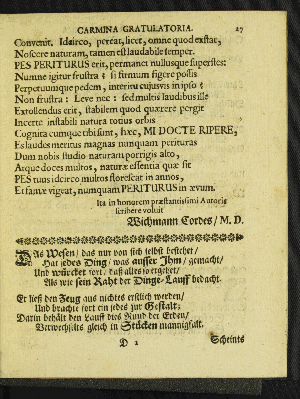 CARMINA GRATULATORIA. 27
Convenit. Idcirco, pereat, licet, omne quod exstat,
Noscere naturam, tamen est laudabile semper.
PES PERITURUS erit, permanet nullusque superstes:
Numne igitur frustra? si firmum figere possis
Perpetuumque pedem, interitu cujusvis in ipso?
Non frustra: Leve nec: sed multis laudibus ille
Extollendus erit, stabilem quod quærere pergit
Incerte instabili natura totius orbis
Cognita cumque tibi sunt, hæc, MI DOCTE RIPERE,
Es laudes meritus magnas nunquam perituras
Dum nobis studio naturam porrigis alto,
Atque doces multos, naturæ essentia quæ sit
PES tuus idcirco multos florescat in annos,
Et famæ vigeat, numquam PERITURUS in ævum.
Ita in honorem præstantissimi Autoris
scribere voluit
Wichmann Cordes / M. D.
DAs Wesen / das nur von sich selbst bestehet /
Hat jedes Ding / was ausser Ihm / gemacht /
Und würcket fort / daß alles so ergehet /
Als wie sein Raht der Dinge-Lauff bedacht.
Er ließ den Zeug aus nichts erstlich werden /
Und brachte fort ein jedes zur Gestalt;
Darin behält den Lauff diß Rund der Erden /
Verwechselts gleich in Stücken mannigfalt.
D 2 Scheints